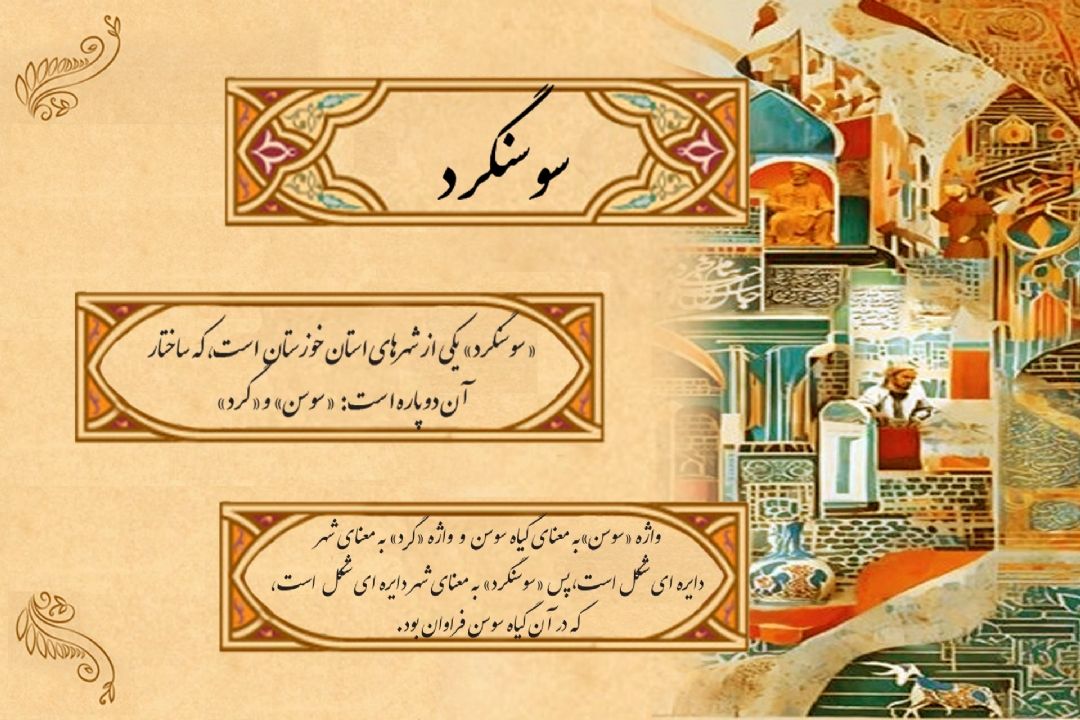 سوسنگرد
«سوسنگرد» یکی از شهرهای استان خوزستان است، که ساختار
آن دو پاره است: «سوسن» و «گرد»
واژه «سوسن» به معنای گیاه سوسن و واژه «گرد» به معنای شهر
دایره ای شکل است، پس «سوسنگرد» به معنای شهر دایره ای شکل است،
که در آن گیاه سوسن فراوان بود.